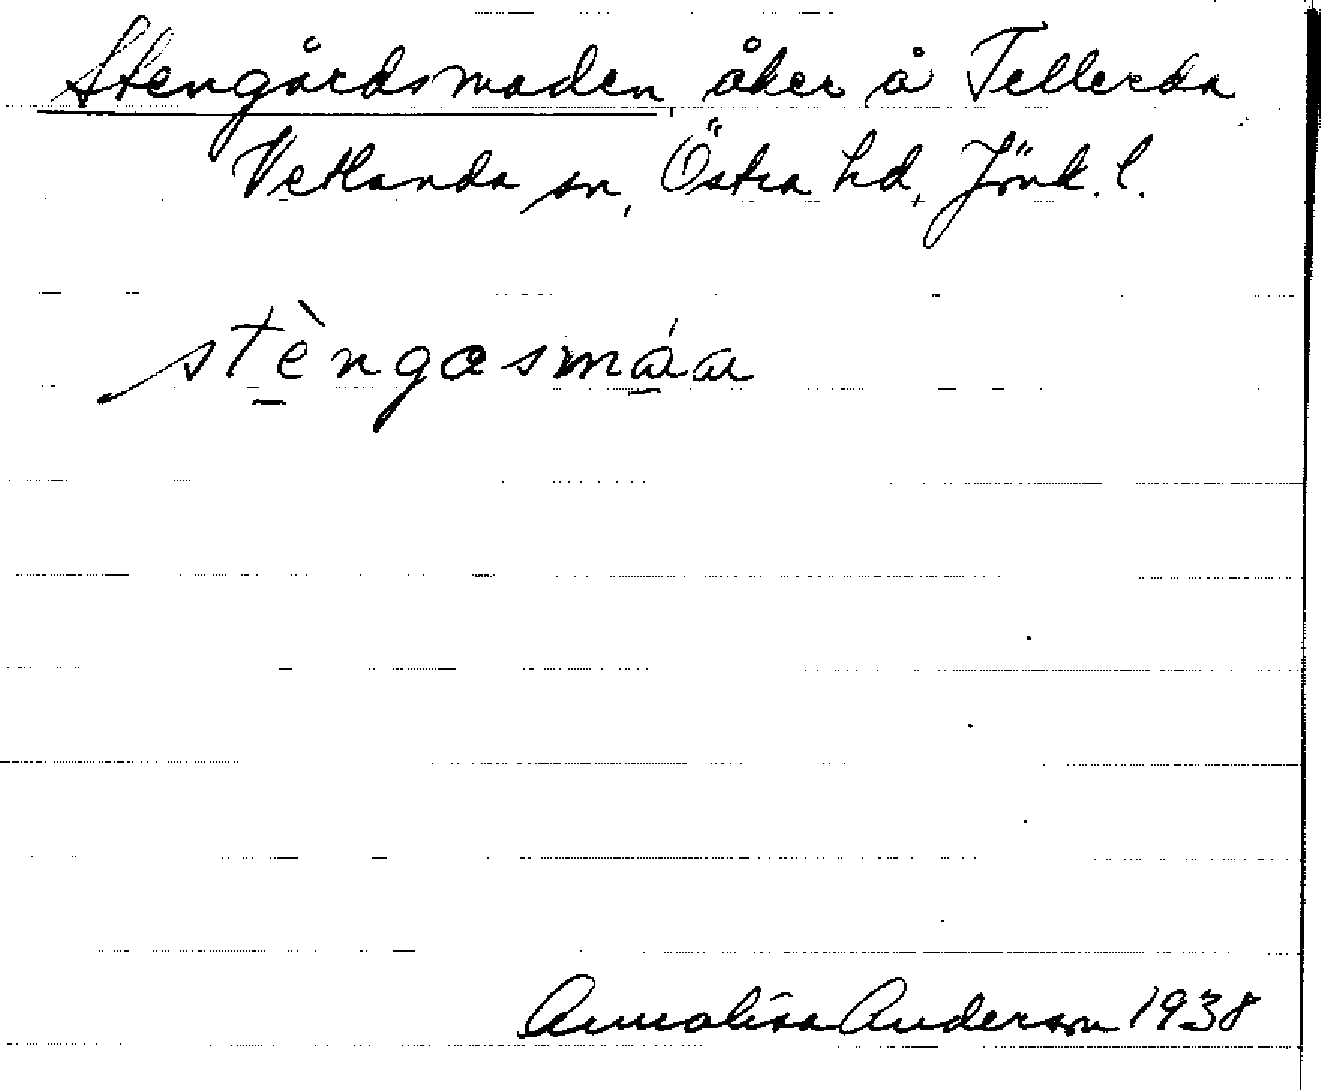 Stengårdsmaden, åker å Tellerda
Vetlanda sn, Östra hd, Jönk. l.
stèngasmáa
Annalisa Anderson 1938